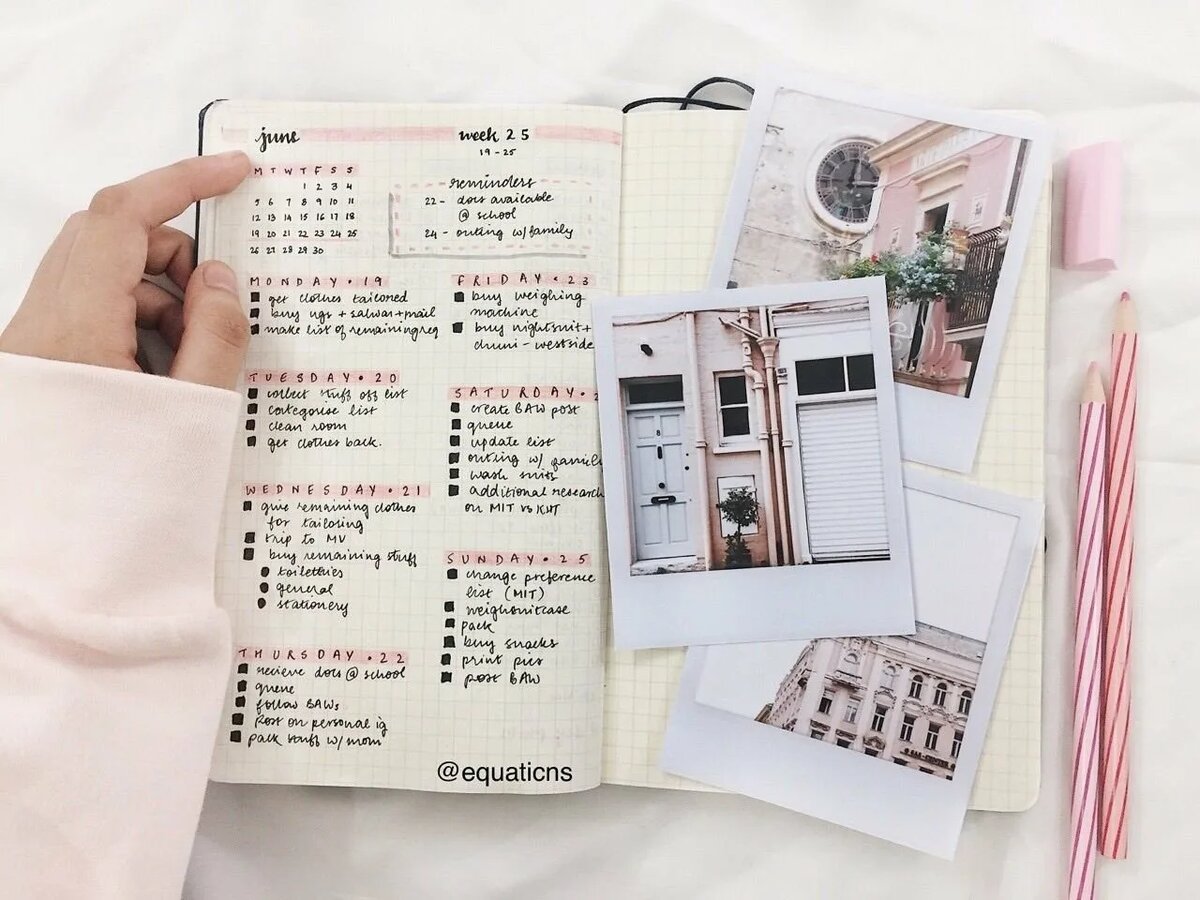 june
week 25
19-25
M T W T F S S
1 2 3 4
5 6 7 8 9 10 11
12 13 14 15 16 17 18
19 20 21 22 23 24 25
26 27 28 29 30
reminders
22- docs available
@ school
24- outing w/family
MONDAY•19
get clothes tailored
buy ngs + salwar + mail
make list of remaining req
TUESDAY•20
collect stuff off list
categorise list
clean room
get clothes back.
WEDNESDAY•21
give remaining clothes
for tailoring
trip to MV
buy remaining stuff
toiletries
general
stationery
THURSDAY•22
recieve docs @ school
queue
follow BAWs
post on personal ig
pack stuff w/ mom
FRIDAY•23
buy weighing
machine
buy nightsuit +
chuni - westside
SATURDAY•2
create BAW post
queue
update list
outing w/ family
wash suits
additional research
on MIT vs KHT
SUNDAY•25
change preference
list (MIT)
weigh suitcase
pack
buy snacks
print pics
post BAW
@equaticns
8